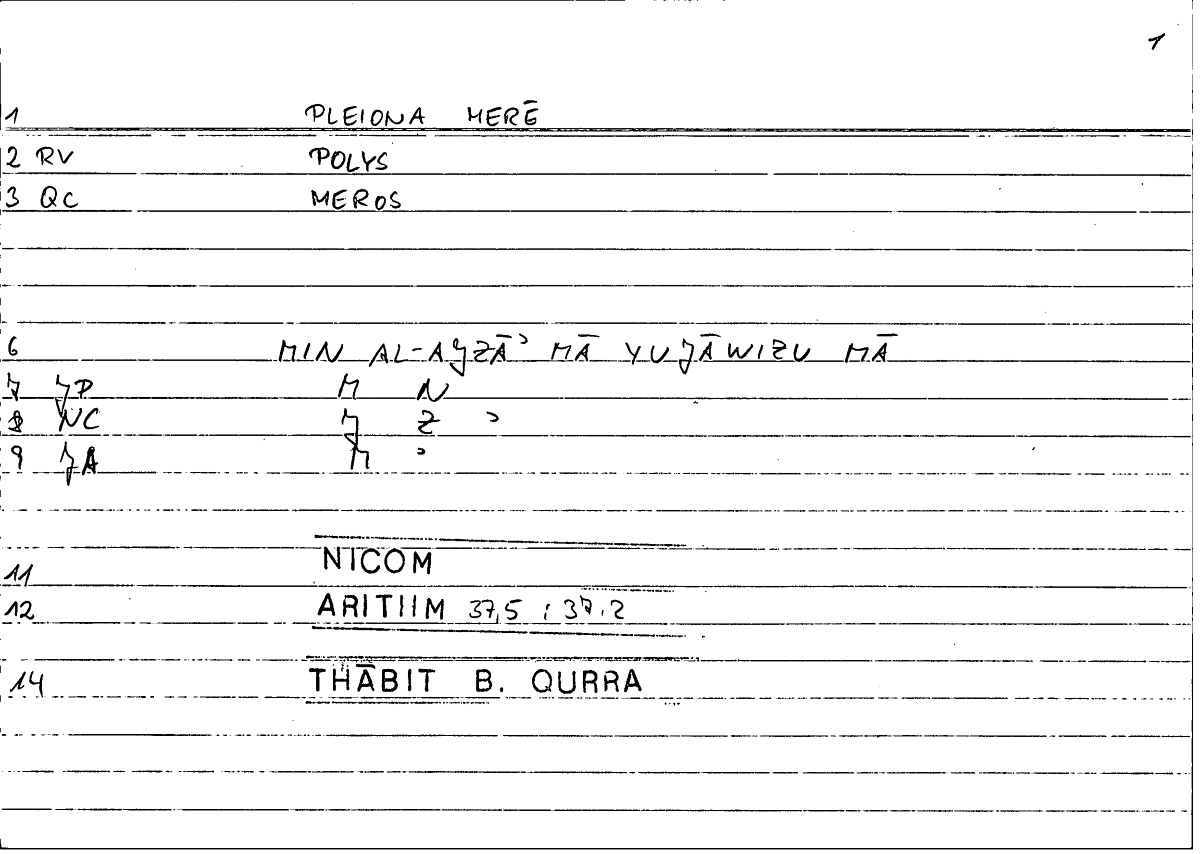 1
1 PLEIONA MERĒ
2 RV POLYS
3 QC MEROS
6 MIN AL-AJZĀʾ MĀ YUJĀWIZU MĀ
7 JP M N
8 NC J Z ʾ
9 JA M ʾ
11 NICOM
12 ARITIIM 37,5 ; 37.2
14 THĀBIT B. QURRA